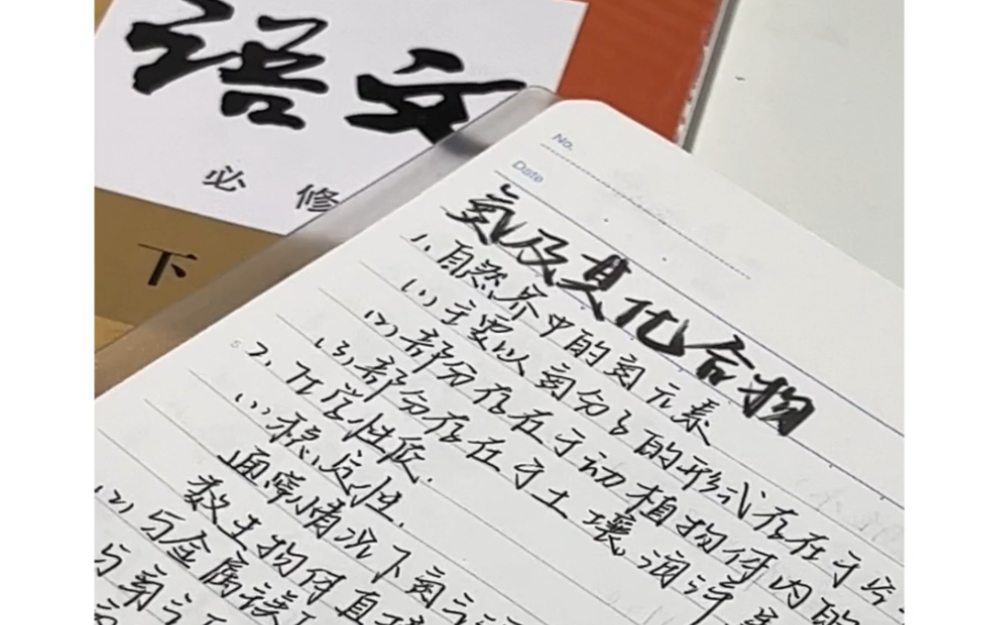 语文
必修
下
No.
Date
氮及其化合物
1、自然界中的氮元素
(1) 主要以氮分子的形式存在于空
(2) 部分存在于动植物体内的
(3) 部分存在于土壤、海洋
2、化学性质
(1) 稳定性
通常情况下氮
数生物体直接
(2) 与金属镁
与氧